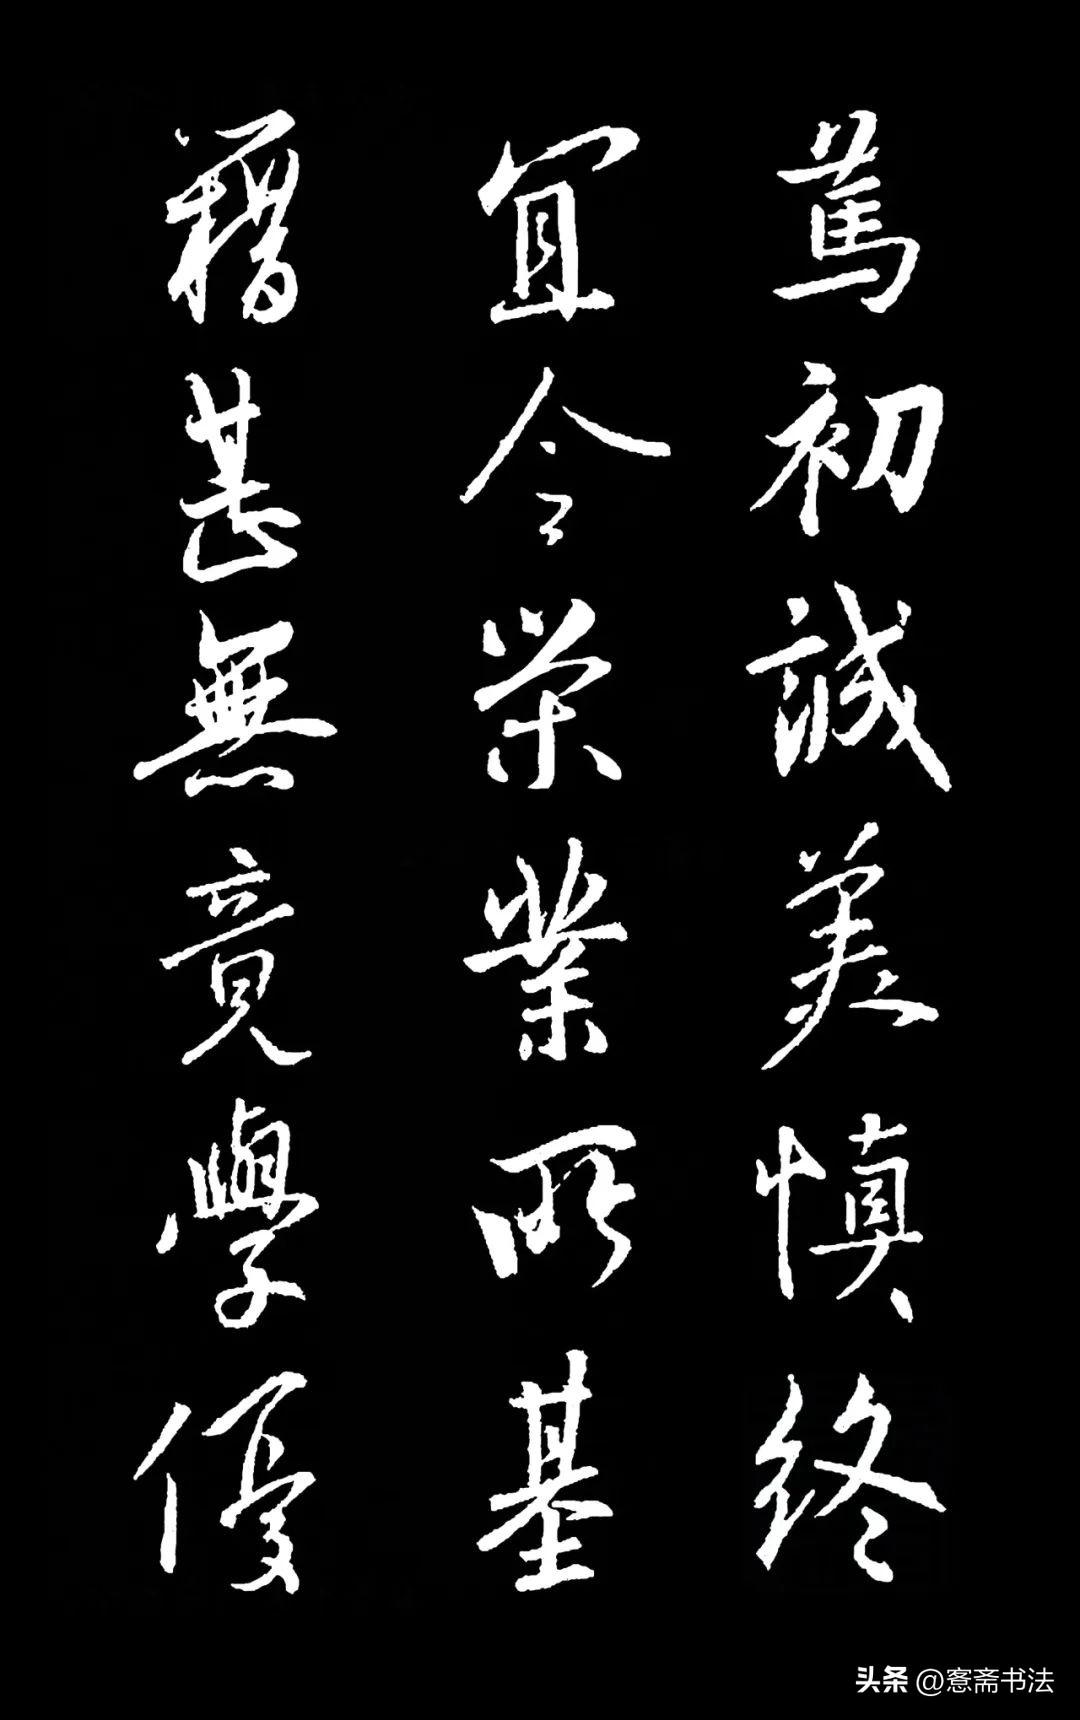 篤初誠美慎終
宜令榮業所基
籍甚無竟學優
头条 @愙斋书法